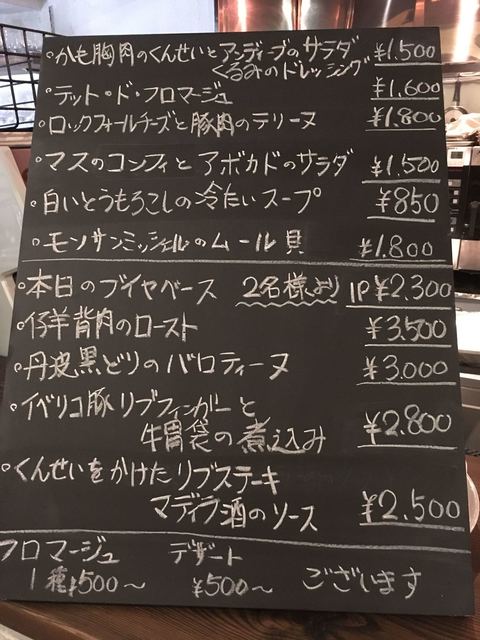 ・かも胸肉のくんせいとアンディーブのサラダ ¥1.500
くるみのドレッシング
・テット・ド・フロマージュ ¥1.600
・ロックフォールチーズと豚肉のテリーヌ ¥1.800
・マスのコンフィとアボカドのサラダ ¥1.500
・白いとうもろこしの冷たいスープ ¥850
・モンサンミッシェルのムール貝 ¥1.800
・本日のブイヤベース 2名様より 1P ¥2.300
・仔羊背肉のロースト ¥3.500
・丹波黒どりのバロティーヌ ¥3.000
・イベリコ豚リブフィンガーと
牛胃袋の煮込み ¥2.800
・くんせいをかけたリブステーキ
マディラ酒のソース ¥2.500
フロマージュ デザート
1種¥500〜 ¥500〜 ございます